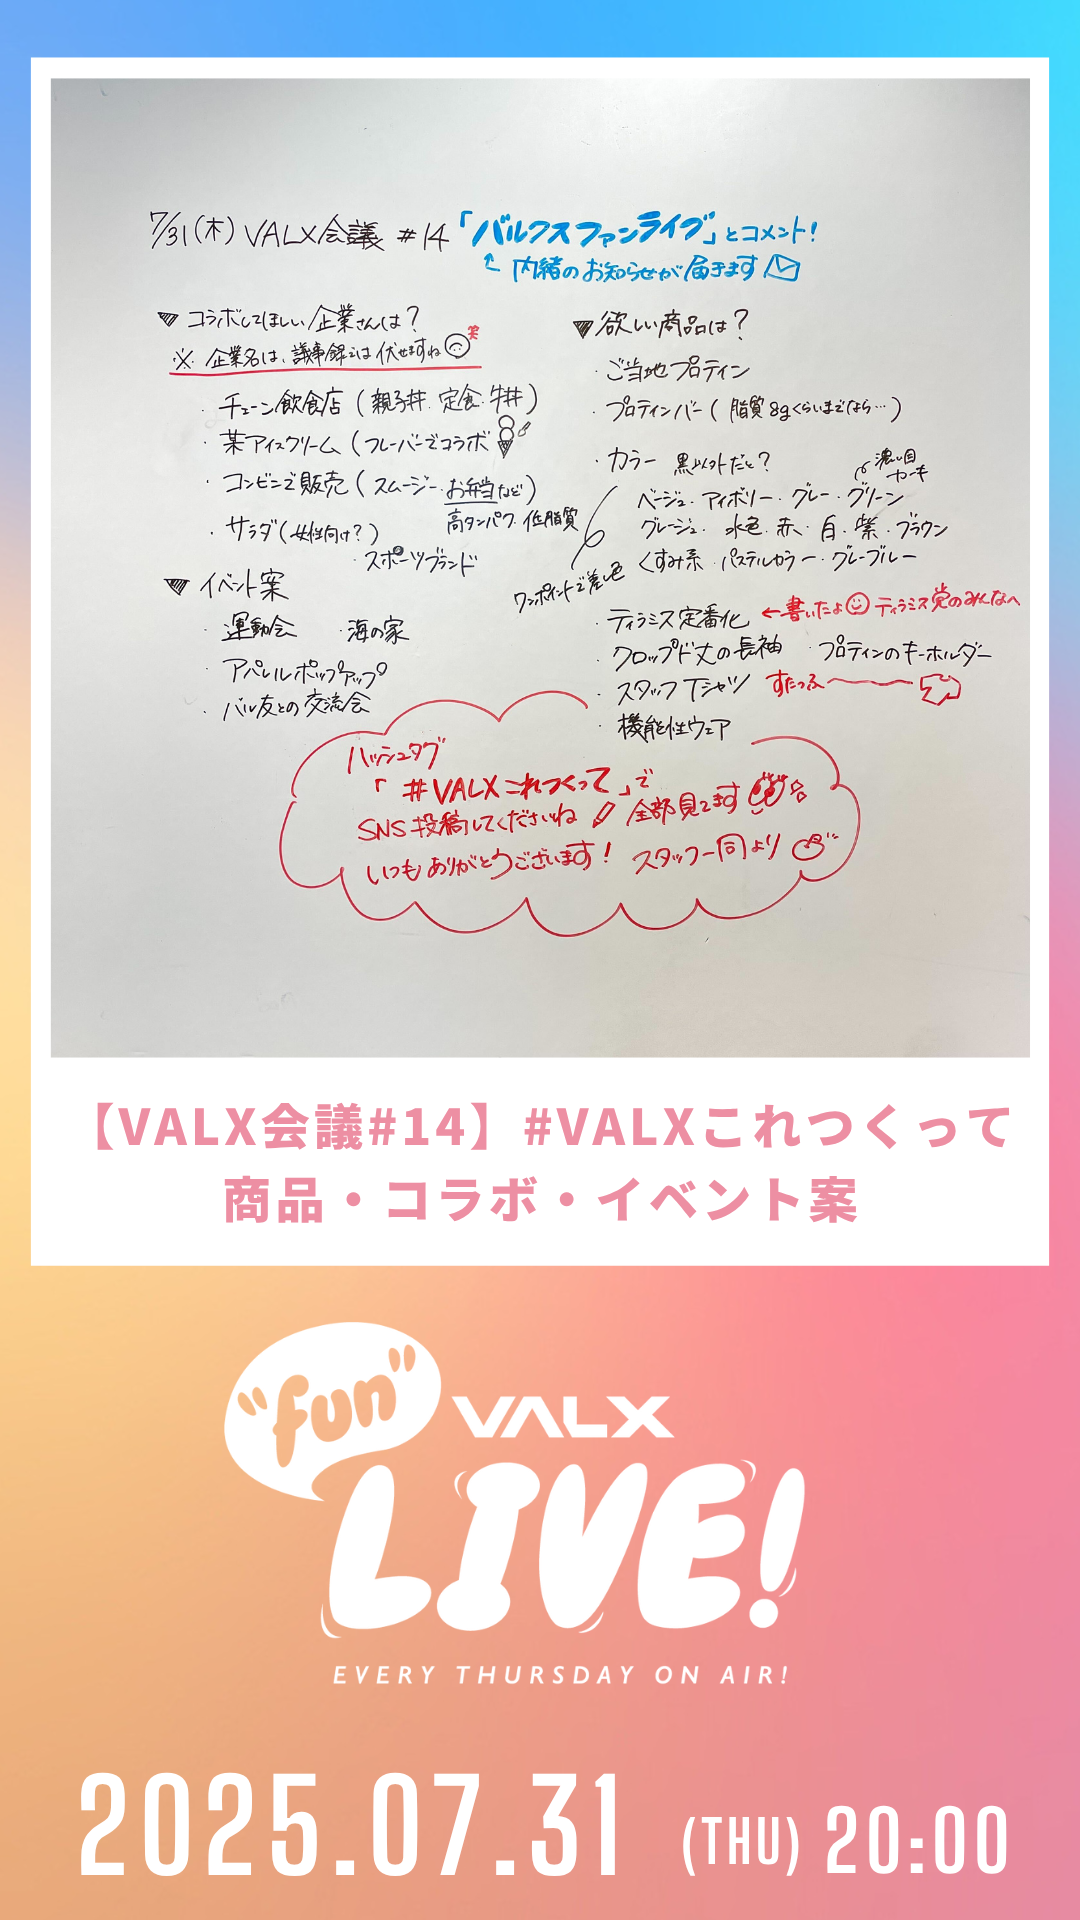 7/31(木) VALX会議 #14 「バルクスファンライブ」とコメント!
内緒のお知らせが届きます
▼コラボしてほしい企業さんは?
※企業名は、議事録では伏せますね 笑
・チェーン飲食店(親子丼・定食・牛丼)
・某アイスクリーム(フレーバーでコラボ
・コンビニで販売(スムージー・お弁当など)
高タンパク・低脂質
・サラダ(女性向け?)
・スポーツブランド
▼イベント案
・運動会 ・海の家
・アパレルポップアップ
・バル友との交流会
▼欲しい商品は?
・ご当地プロテイン
・プロテインバー(脂質8gくらいまでなら…)
・カラー 黒以外だと?
濃い目
カーキ
ベージュ・アイボリー・グレー・グリーン
グレージュ・水色・赤・白・紫・ブラウン
くすみ系・パステルカラー・グレーブルー
ワンポイントで差し色
・ティラミス定番化 ←書いたよ ティラミス党のみんなへ
・クロップド丈の長袖 ・プロテインのキーホルダー
・スタッフTシャツ すたっふ〜
・機能性ウェア
ハッシュタグ
「#VALXこれつくって」で
SNS投稿してくださいね 全部見てます
いつもありがとうございます! スタッフ一同より
【VALX会議#14】#VALXこれつくって
商品・コラボ・イベント案
"fun" VALX
LIVE!
EVERY THURSDAY ON AIR!
2025.07.31 (THU) 20:00